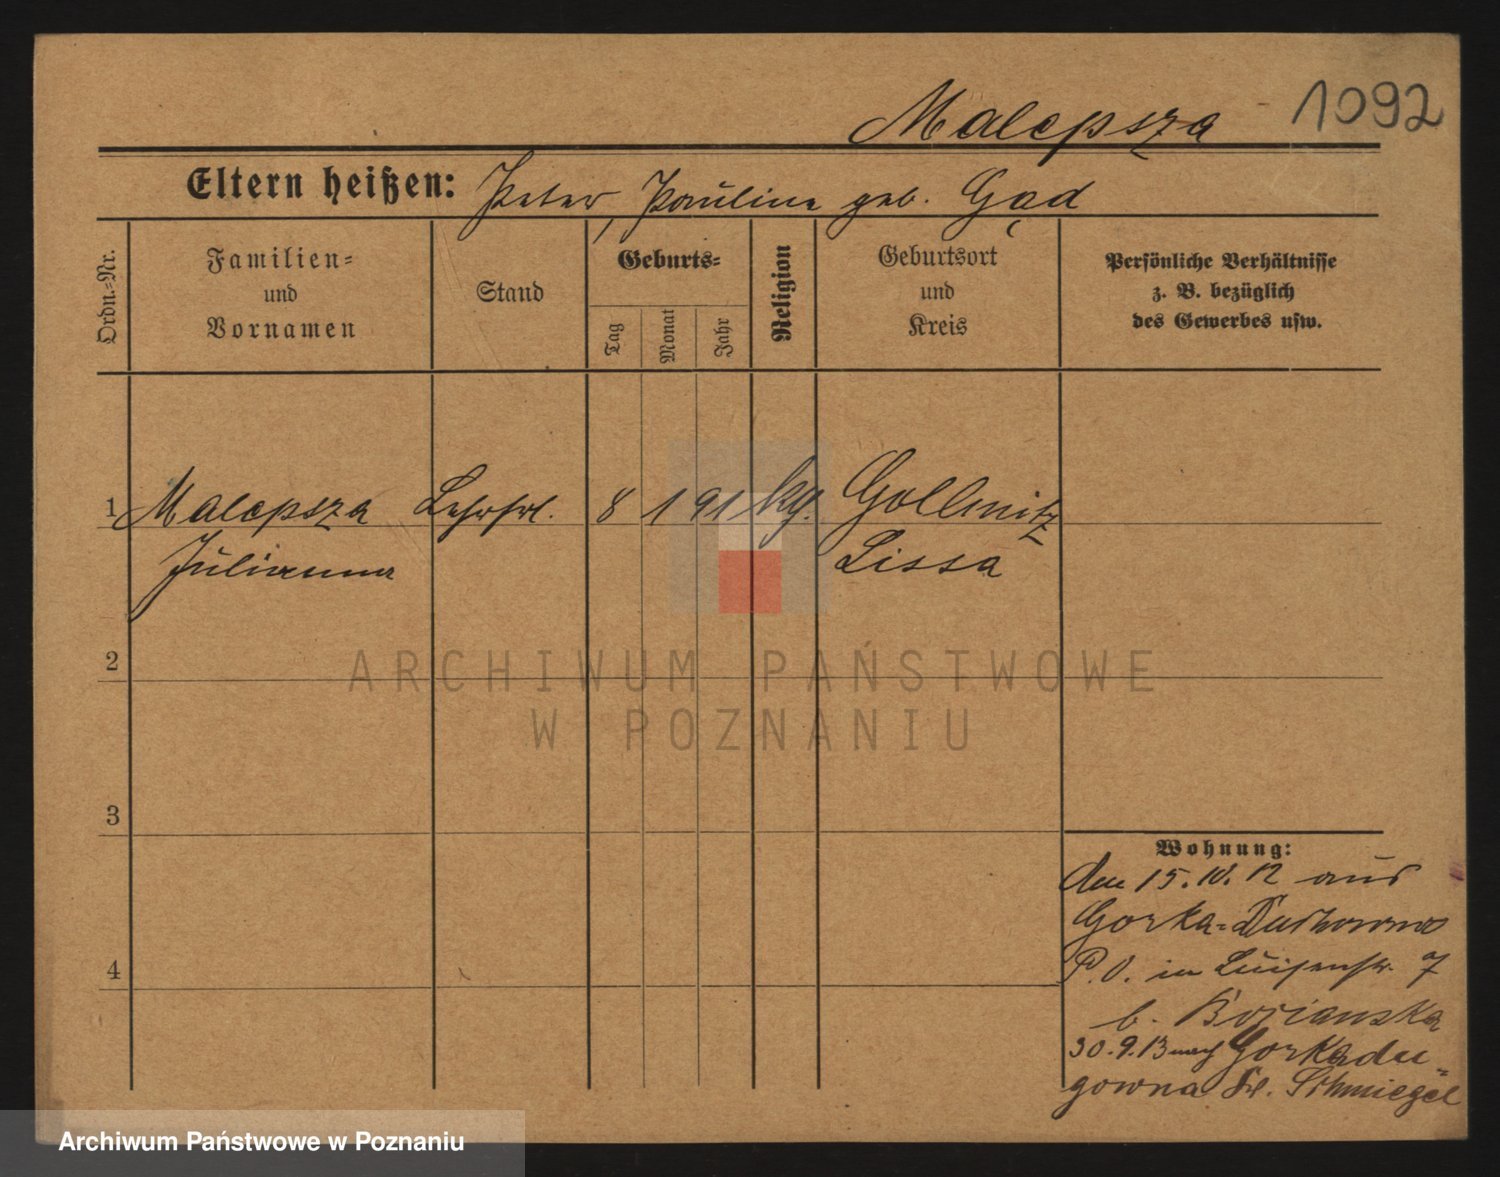 Malepsza 1092
Eltern heißen: Peter, Pauline geb. Gąd
Ordn.-Nr.
Familien-
und
Vornamen
Stand
Geburts-
Tag
Monat
Jahr
Religion
Geburtsort
und
Kreis
Persönliche Verhältnisse
z. B. bezüglich
des Gewerbes usw.
1 Malepsza Lehrfrl. 8 1 91 kg. Gollmitz
Julianna Lissa
ARCHIWUM PAŃSTWOWE
W POZNANIU
2
3
4
Wohnung:
Am 15. 10. 12 aus
Gorka-Duchowna
P. O. in Luisenstr. 7
b.
30. 9. 13 nach Gorkadu-
gowna Kr. Schmiegel
Archiwum Państwowe w Poznaniu